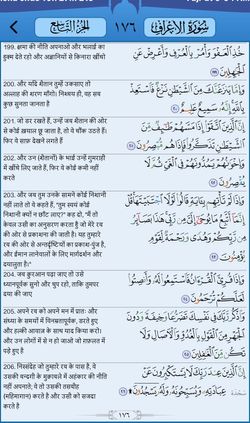 سُورَةُ الأَعْرَافِ
١٧٦
الجُزْءُ التَّاسِعُ
199. क्षमा की नीति अपनाओ और भलाई का
हुक्म देते रहो और अज्ञानियों से किनारा खींचो
خُذِ ٱلْعَفْوَ وَأْمُرْ بِٱلْعُرْفِ وَأَعْرِضْ عَنِ
ٱلْجَـٰهِلِينَ ١٩٩
200. और यदि शैतान तुम्हें उकसाए तो
अल्लाह की शरण माँगो। निश्चय ही, वह सब
कुछ सुनता जानता है
وَإِمَّا يَنزَغَنَّكَ مِنَ ٱلشَّيْطَـٰنِ نَزْغٌ فَٱسْتَعِذْ
بِٱللَّهِ إِنَّهُۥ سَمِيعٌ عَلِيمٌ ٢٠٠
201. जो डर रखते हैं, उन्हें जब शैतान की ओर
से कोई ख़याल छू जाता है, तो वे चौंक उठते हैं।
फिर वे साफ़ देखने लगते हैं
إِنَّ ٱلَّذِينَ ٱتَّقَوْا۟ إِذَا مَسَّهُمْ طَـٰٓئِفٌ مِّنَ
ٱلشَّيْطَـٰنِ تَذَكَّرُوا۟ فَإِذَا هُم مُّبْصِرُونَ ٢٠١
202. और उन (शैतानों) के भाई उन्हें गुमराही
में खींचे लिए जाते हैं, फिर वे कोई कमी नहीं
करते
وَإِخْوَٰنُهُمْ يَمُدُّونَهُمْ فِى ٱلْغَىِّ ثُمَّ لَا
يُقْصِرُونَ ٢٠٢
203. और जब तुम उनके सामने कोई निशानी
नहीं लाते तो वे कहते हैं, "तुम स्वयं कोई
निशानी क्यों न छाँट लाए?" कह दो, "मैं तो
केवल उसी का अनुसरण करता हूँ जो मेरे रब
की ओर से प्रकाशना की जाती है। यह तुम्हारे
रब की ओर से अन्तर्दृष्टियों का प्रकाश-पुंज है,
और ईमान लानेवालों के लिए मार्गदर्शन और
दयालुता है।"
وَإِذَا لَمْ تَأْتِهِم بِـَٔايَةٍ قَالُوا۟ لَوْلَا ٱجْتَبَيْتَهَا ۚ قُلْ
إِنَّمَآ أَتَّبِعُ مَا يُوحَىٰٓ إِلَىَّ مِن رَّبِّى ۚ هَـٰذَا بَصَآئِرُ
مِن رَّبِّكُمْ وَهُدًى وَرَحْمَةٌ لِّقَوْمٍ
يُؤْمِنُونَ ٢٠٣
204. जब क़ुरआन पढ़ा जाए तो उसे
ध्यानपूर्वक सुनो और चुप रहो, ताकि तुमपर
दया की जाए
وَإِذَا قُرِئَ ٱلْقُرْءَانُ فَٱسْتَمِعُوا۟ لَهُۥ وَأَنصِتُوا۟
لَعَلَّكُمْ تُرْحَمُونَ ٢٠٤
205. अपने रब को अपने मन में प्रातः और
संध्या के समयों में विनम्रतापूर्वक, डरते हुए
और हल्की आवाज़ के साथ याद किया करो।
और उन लोगों में से न हो जाओ जो ग़फ़लत में
पड़े हुए है
وَٱذْكُر رَّبَّكَ فِى نَفْسِكَ تَضَرُّعًا وَخِيفَةً وَدُونَ
ٱلْجَهْرِ مِنَ ٱلْقَوْلِ بِٱلْغُدُوِّ وَٱلْـَٔاصَالِ وَلَا
تَكُن مِّنَ ٱلْغَـٰفِلِينَ ٢٠٥
206. निस्संदेह जो तुम्हारे रब के पास है, वे
उसकी बन्दगी के मुक़ाबले में अहंकार की नीति
नहीं अपनाते; वे तो उसकी तसबीह
(महिमागान) करते है और उसी को सजदा
करते है
إِنَّ ٱلَّذِينَ عِندَ رَبِّكَ لَا يَسْتَكْبِرُونَ عَنْ
عِبَادَتِهِۦ وَيُسَبِّحُونَهُۥ وَلَهُۥ يَسْجُدُونَ ۩ ٢٠٦
١٧٦